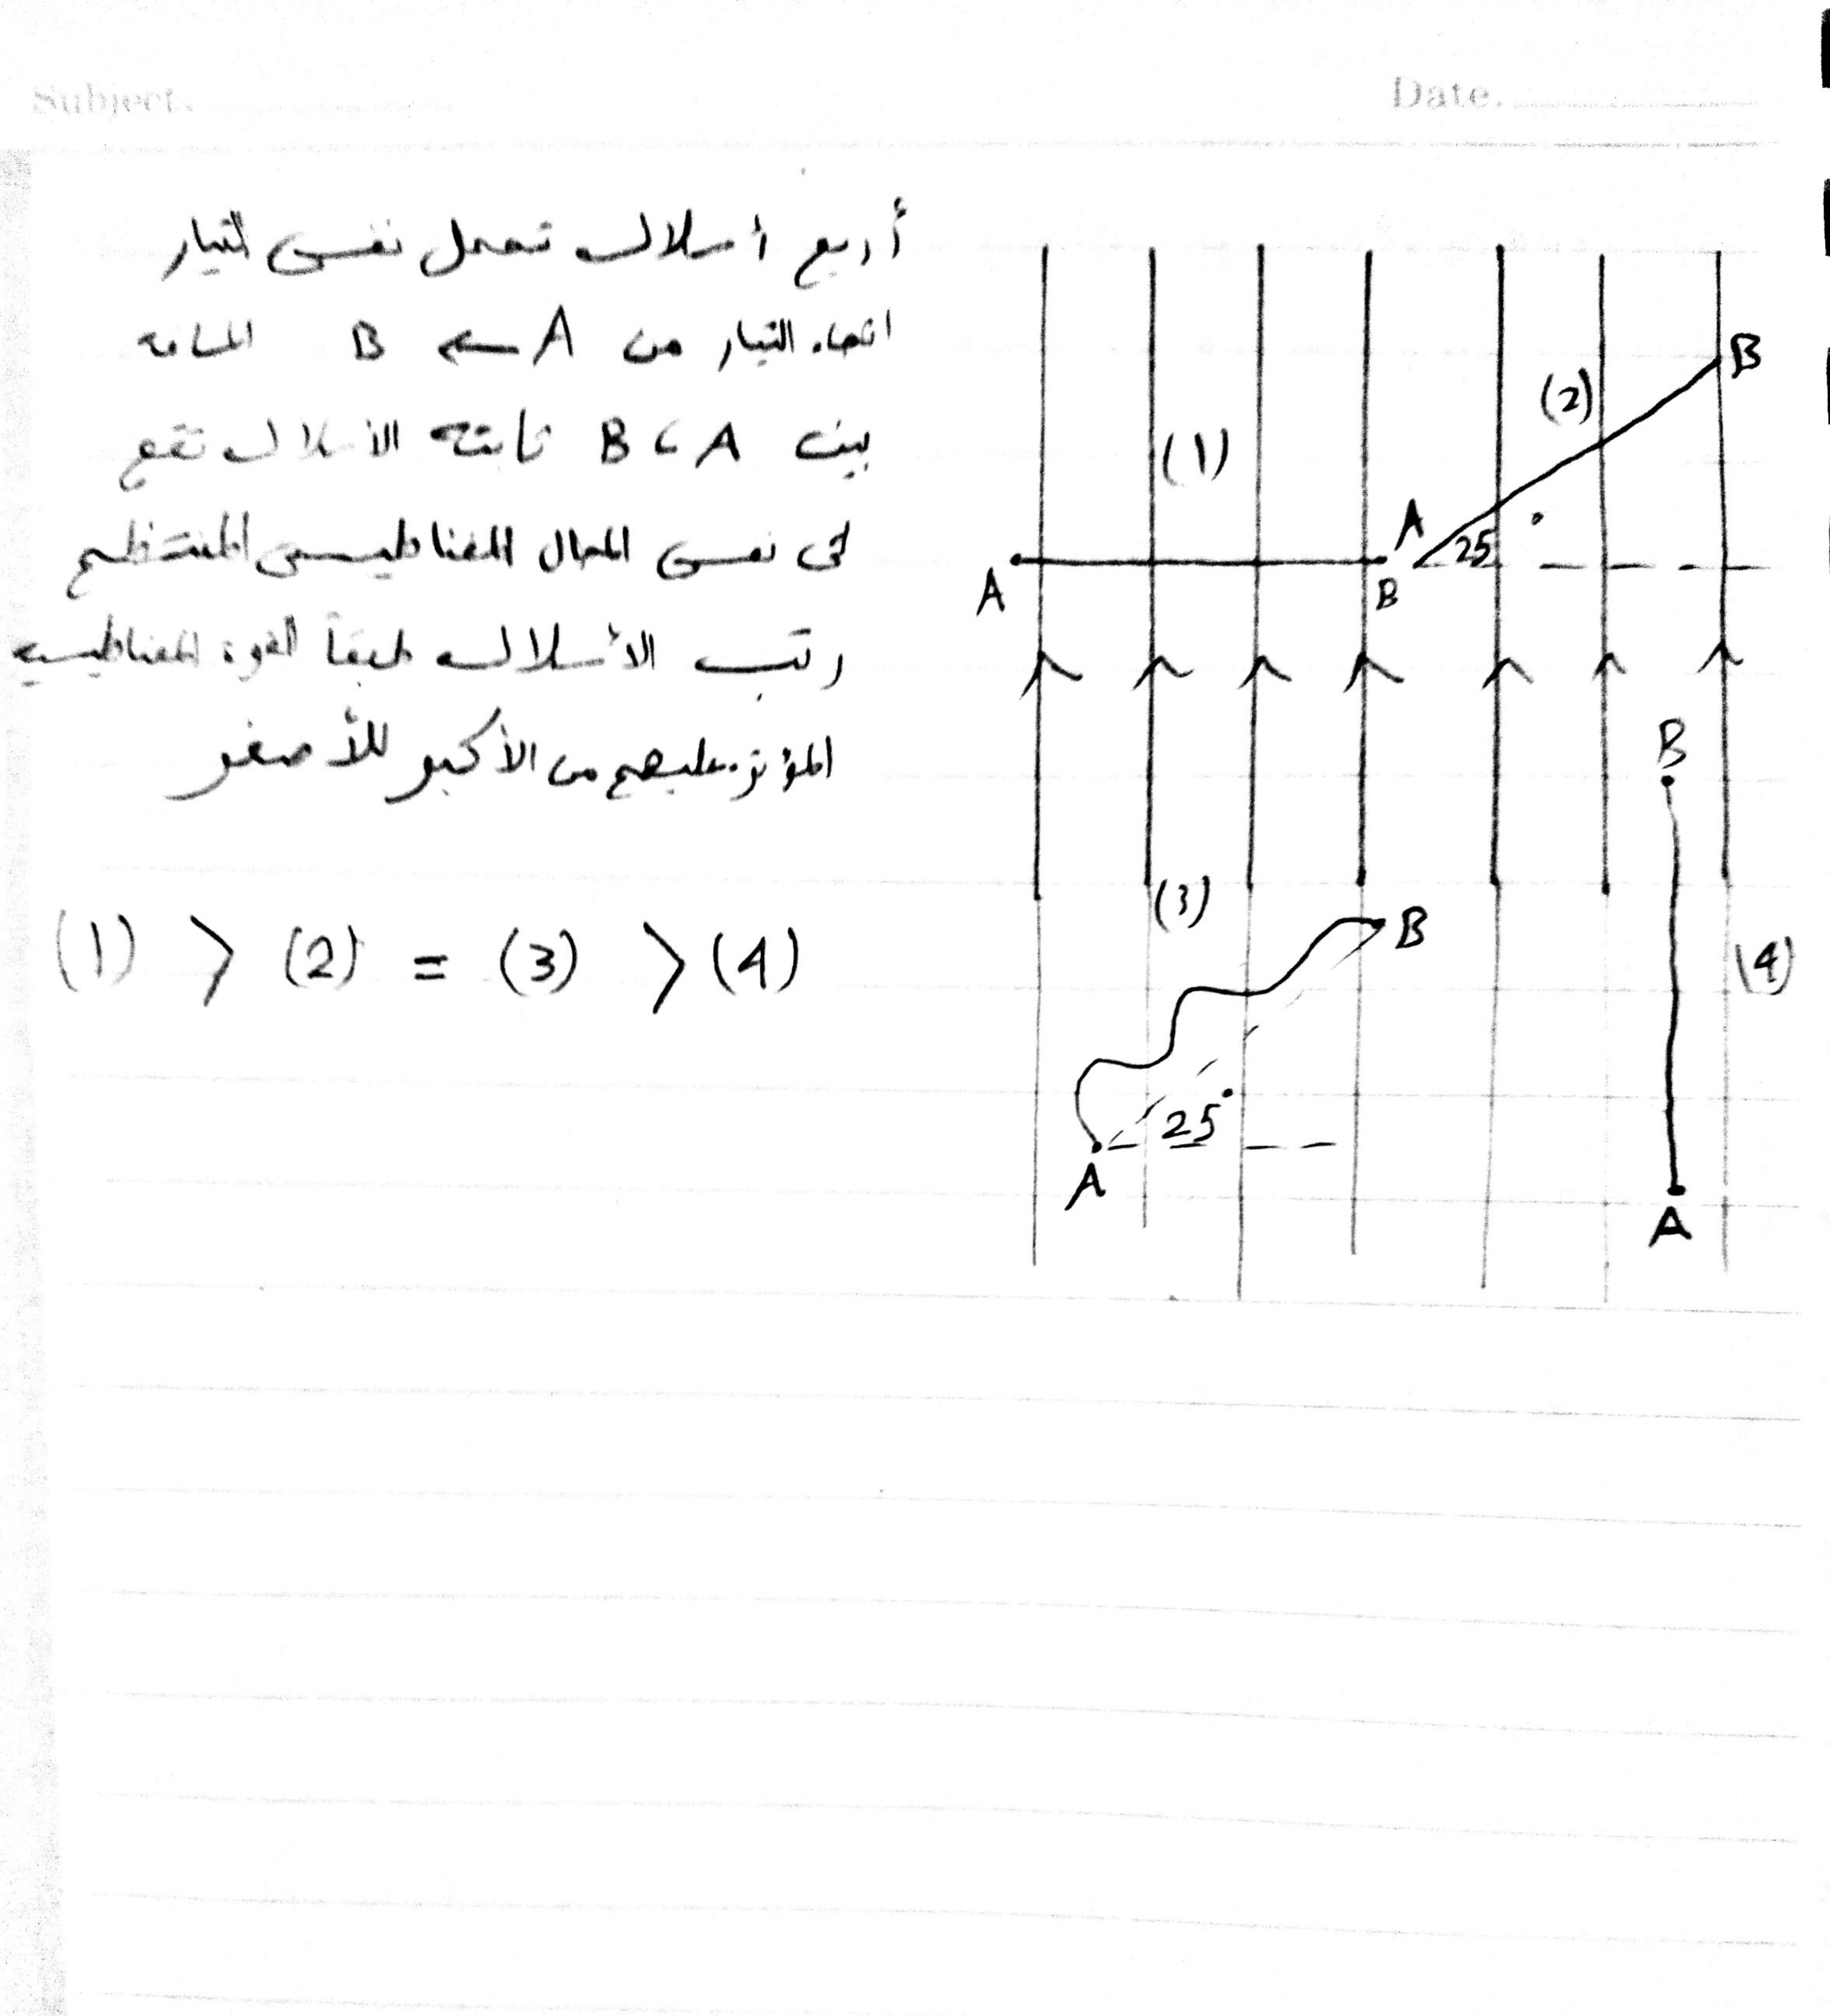 Subject.
Date.
أربع أسلاك تحمل نفس التيار
اتجاه التيار من A ← B المسافة
بين A ، B ثابتة الأسلاك تقع
في نفس المجال المغناطيسي المنتظم
رتب الأسلاك طبقاً القوة المغناطيسية
المؤثرة عليهم من الأكبر للأصغر
(1) > (2) = (3) > (4)
(1)
A
B
(2)
A
25°
B
(3)
B
25°
A
B
(4)
A